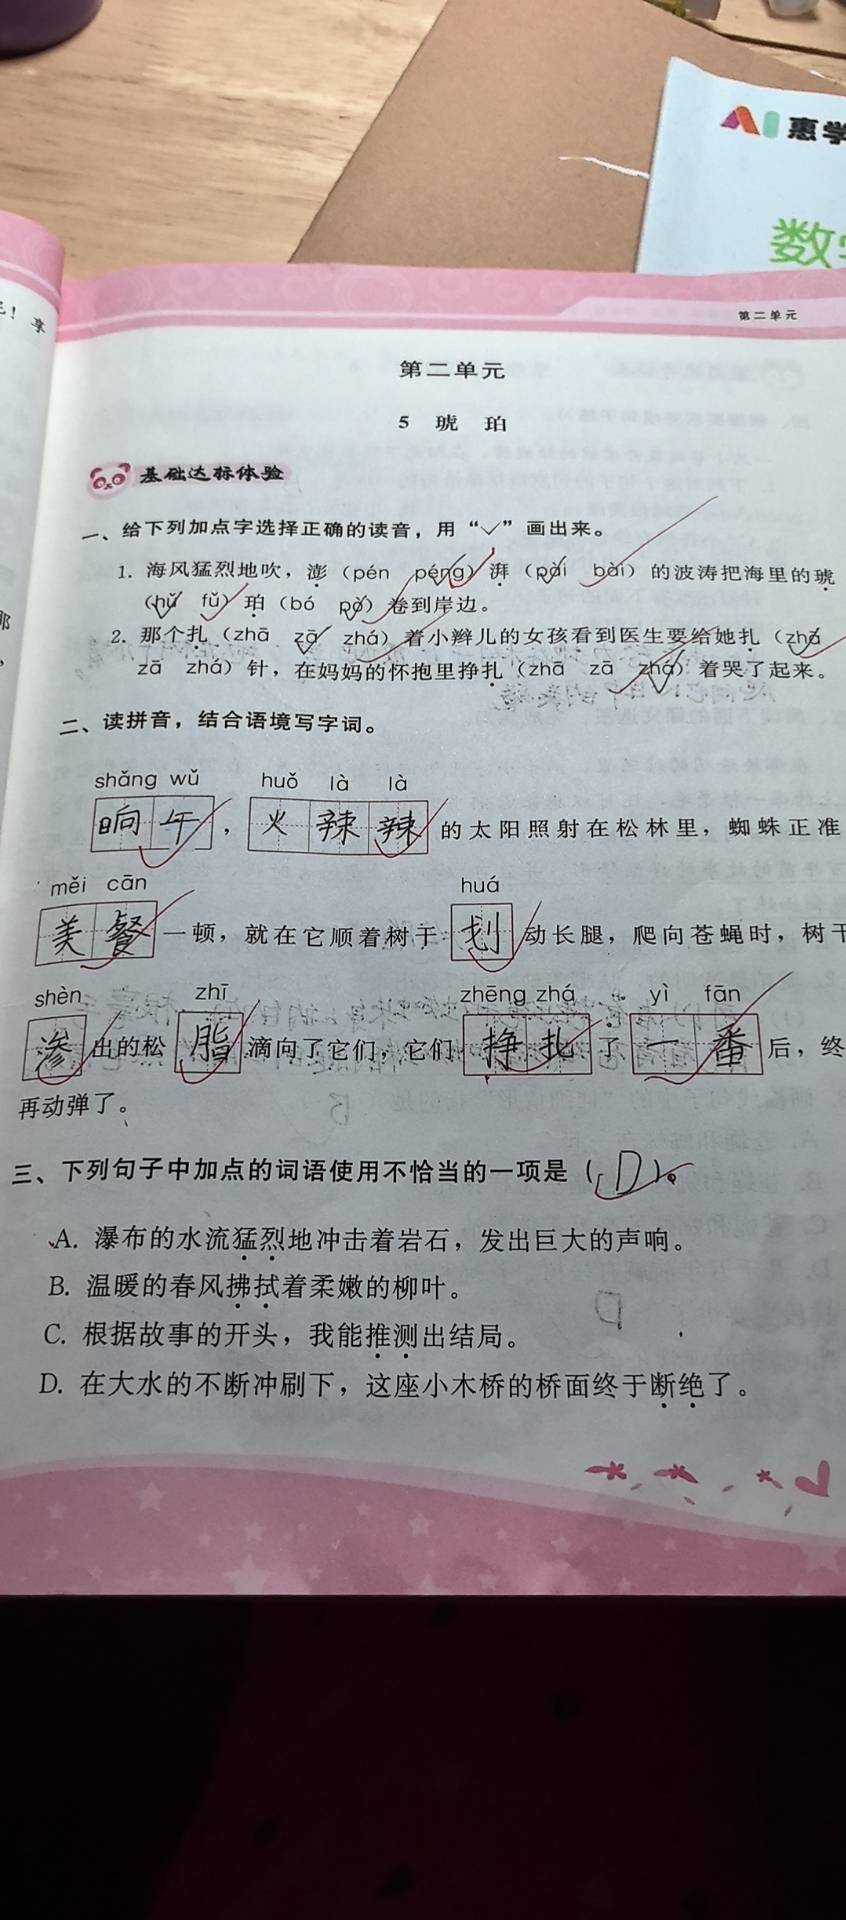 惠学
数学
享
第二单元
第二单元
5 琥 珀
基础达标体验
一、给下列加点字选择正确的读音，用“✓”画出来。
1. 海风猛烈地吹，澎（pén pénɡ）湃（pài bài）的波涛把海里的琥
（hǔ fǔ）珀（bó pò）卷到岸边。
2. 那个扎（zhā zā zhá）着小辫儿的女孩看到医生要给她扎（zhā
zā zhá）针，在妈妈的怀抱里挣扎（zhā zā zhá）着哭了起来。
二、读拼音，结合语境写字词。
shǎng wǔ huǒ là là
晌午，火辣辣的太阳照射在松林里，蜘蛛正准
měi cān huá
美餐一顿，就在它顺着树干划动长腿，爬向苍蝇时，树干
shèn zhī zhēng zhá yì fān
渗出的松脂滴向了它们，它们挣扎了一番后，终
再动弹了。
三、下列句子中加点的词语使用不恰当的一项是（D）。
A. 瀑布的水流猛烈地冲击着岩石，发出巨大的声响。
B. 温暖的春风拂拭着柔嫩的柳叶。
C. 根据故事的开头，我能推测出结局。
D. 在大水的不断冲刷下，这座小木桥的桥面终于断绝了。